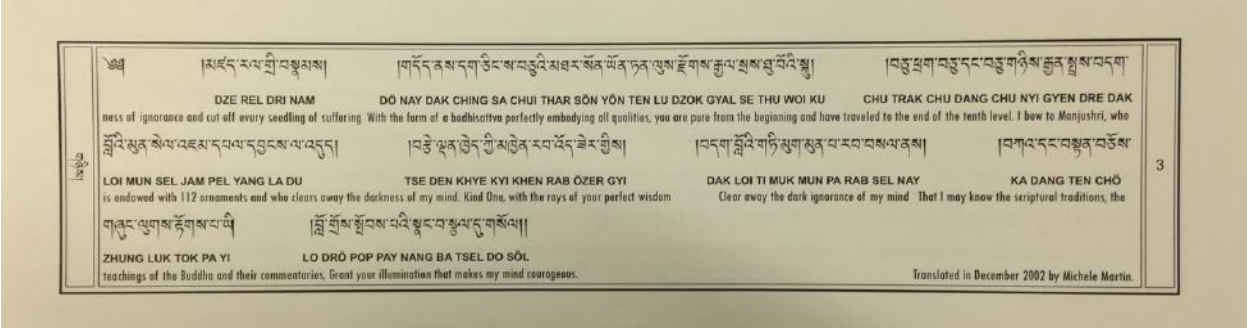 ༄༅། །མཛད་རལ་གྲི་བསྣམས། །གདོད་ནས་དག་ཅིང་ས་བཅུའི་མཐར་སོན་ཡོན་ཏན་ལུས་རྫོགས་རྒྱལ་སྲས་ཐུ་བོའི་སྐུ། །བཅུ་ཕྲག་བཅུ་དང་བཅུ་གཉིས་རྒྱན་སྤྲས་བདག་
DZE REL DRI NAM DÖ NAY DAK CHING SA CHUI THAR SÖN YÖN TEN LU DZOK GYAL SE THU WOI KU CHU TRAK CHU DANG CHU NYI GYEN DRE DAK
ness of ignorance and cut off every seedling of suffering. With the form of a bodhisattva perfectly embodying all qualities, you are pure from the beginning and have traveled to the end of the tenth level. I bow to Manjushri, who
བློའི་མུན་སེལ་འཇམ་དཔལ་དབྱངས་ལ་འདུད། །བརྩེ་ལྡན་ཁྱེད་ཀྱི་མཁྱེན་རབ་འོད་ཟེར་གྱིས། །བདག་བློའི་གཏི་མུག་མུན་པ་རབ་བསལ་ནས། །བཀའ་དང་བསྟན་བཅོས་
གཉིས།
3
LOI MUN SEL JAM PEL YANG LA DU TSE DEN KHYE KYI KHEN RAB ÖZER GYI DAK LOI TI MUK MUN PA RAB SEL NAY KA DANG TEN CHÖ
is endowed with 112 ornaments and who clears away the darkness of my mind. Kind One, with the rays of your perfect wisdom Clear away the dark ignorance of my mind That I may know the scriptural traditions, the
གཞུང་ལུགས་རྟོགས་པ་ཡི། །བློ་གྲོས་སྤོབས་པའི་སྣང་བ་སྩལ་དུ་གསོལ།།
ZHUNG LUK TOK PA YI LO DRÖ POP PAY NANG BA TSEL DO SÖL
teachings of the Buddha and their commentaries, Grant your illumination that makes my mind courageous. Translated in December 2002 by Michele Martin.